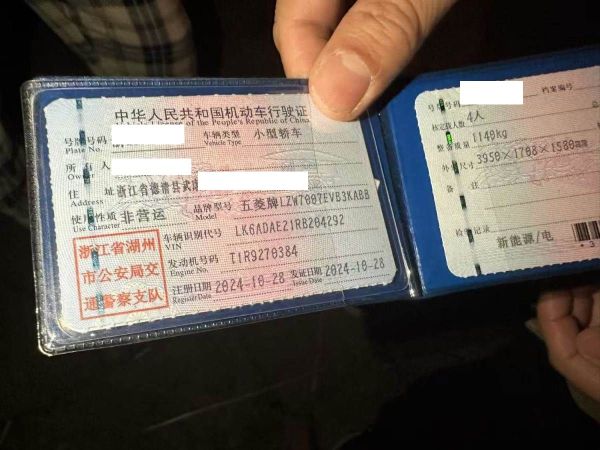 中华人民共和国机动车行驶证
License of the People's Republic of China
号牌号码
Plate No.
车辆类型 小型轿车
Vehicle Type
所有人
Owner
住址 浙江省德清县武
Address
使用性质 非营运
Use Character
品牌型号 五菱牌LZW7007EVB3KABB
Model
浙江省湖州
市公安局交
通警察支队
车辆识别代号 LK6ADAE21RB204292
VIN
发动机号码 T1R9270384
Engine No.
注册日期 2024-10-28 发证日期 2024-10-28
Register Date Issue Date
号牌号码 档案编号
核定载人数 4人
整备质量 1140kg
外廓尺寸 3950×1708×1580mm
备注
检验记录
新能源/电